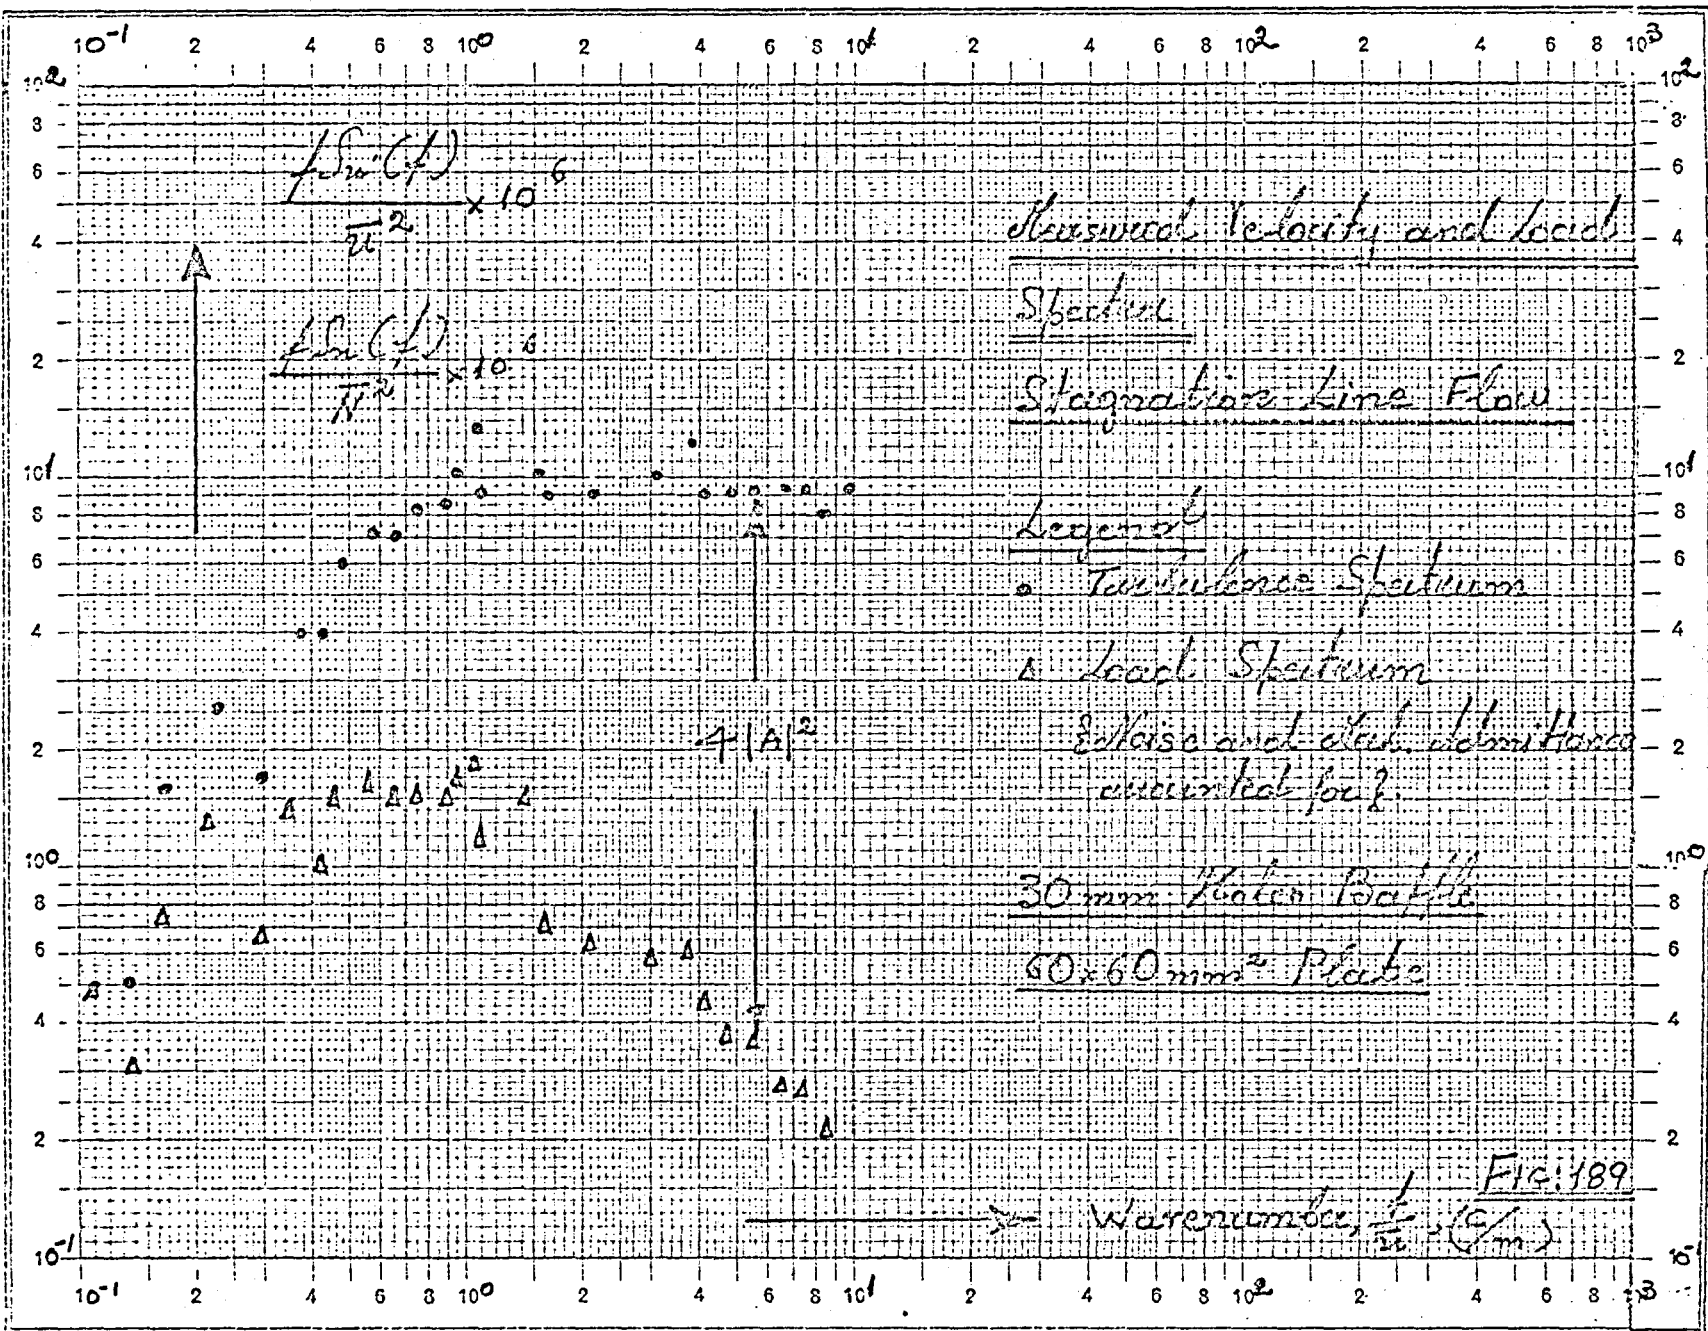 10-1 2 4 6 8 100 2 4 6 8 101 2 4 6 8 102 2 4 6 8 103
102 8 6 4 2 101 8 6 4 2 100 8 6 4 2 10-1
f Su(f) / ū² × 10⁶
f Sn(f) / N̄² × 10⁶
Measured Velocity and Load
Spectra
Stagnation Line Flow
Legend
Turbulence Spectrum
Δ Load Spectrum
{Noise and Admittance
accounted for}.
4|A|²
30 mm Holes Baffle
60x60 mm² Plate
FIG: 189
Wavenumber, f/ū, (c/m)
102 8 6 4 2 101 8 6 4 2 100 8 6 4 2 10-1
10-1 2 4 6 8 100 2 4 6 8 101 2 4 6 8 102 2 4 6 8 103